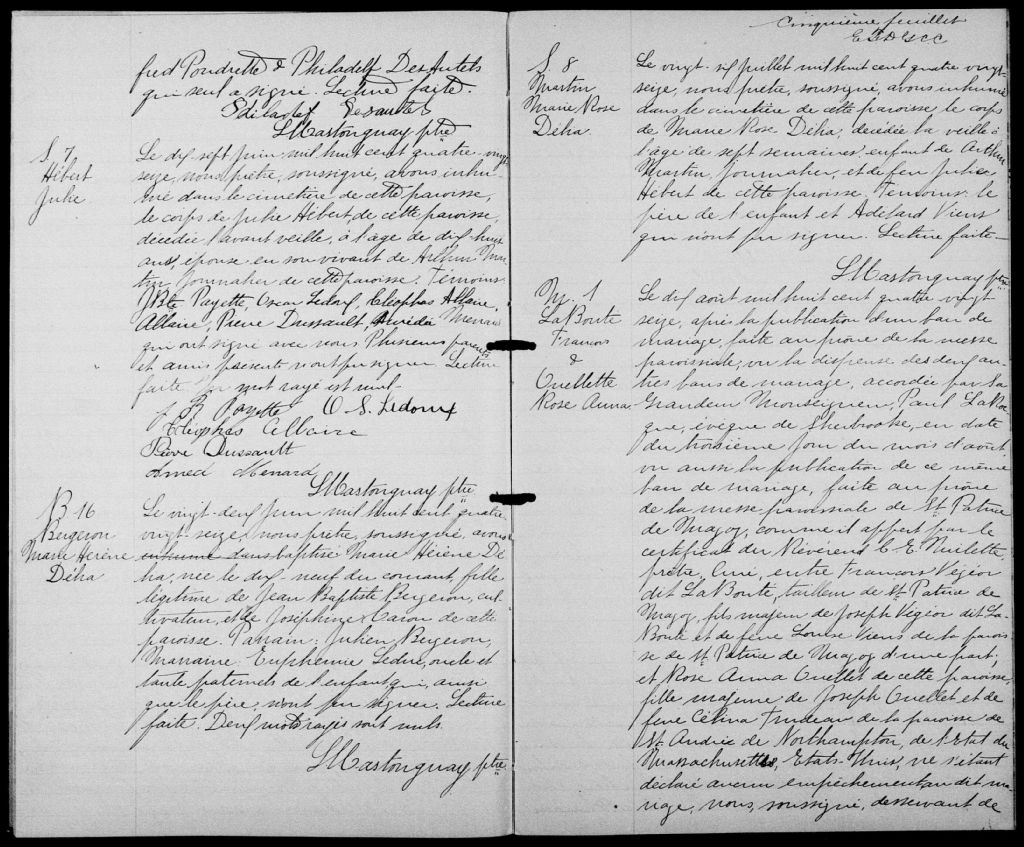 fred Poudrette & Philadelf Des Autels
qui seul a signé. Lecture faite.
Philadelf Desautels
Castonguay ptre
S 7
Hébert
Julie
Le dix-sept juin mil huit cent quatre vingt
seize, nous prêtre, soussigné, avons inhu-
mé dans le cimetière de cette paroisse,
le corps de Julie Hébert de cette paroisse,
décédée l'avant veille, à l'âge de dix-huit
ans, épouse en son vivant de Arthur Mar-
tin journalier de cette paroisse. Témoins
Payette, Oscar Ledoux, Cléophas Allaire,
Allaire, Pierre Dussault, Amédé Menard
qui ont signé avec nous Plusieurs parents
et amis présents n'ont pu signer. Lecture
faite un mot rayé est nul-
J B Payette O. S. Ledoux
Cléophas Allaire
Pierre Dussault
Amed Menard
Castonguay ptre
B 16
Bergeron
Marie Hérène
Déha
Le vingt-deux juin mil huit cent quatre
vingt-seize, nous prêtre, soussigné, avons
inhumé dans baptisé Marie Hérène Dé
ha, née le dix-neuf du courant, fille
légitime de Jean Baptiste Bergeron, cul-
tivateur, et de Joséphine Caron de cette
paroisse. Parrain: Julien Bergeron,
Marraine: Euphémie Leduc, oncle et
tante paternels de l'enfant qui, ainsi
que le père, n'ont pu signer. Lecture
faite. Deux mots rayés sont nuls.
Castonguay ptre
Cinquième feuillet
S. 8
Martin
Marie Rose
Déha
Le vingt-six juillet mil huit cent quatre vingt-
seize, nous, prêtre, soussigné, avons inhumé
dans le cimetière de cette paroisse le corps
de Marie Rose Déha, décédée la veille à
l'âge de sept semaines, enfant de Arthur
Martin, journalier, et de feu Julie
Hébert de cette paroisse. Témoins: le
père de l'enfant et Adélard Viens
qui n'ont pu signer. Lecture faite-
Castonguay ptre
M. 1
LaBonte
Francois
&
Ouellette
Rose Anna
Le dix août mil huit cent quatre vingt-
seize, après la publication d'un ban de
mariage, faite au prône de la messe
paroissiale; vu la dispense des deux au-
tres bans de mariage, accordée par Sa
Grandeur Monseigneur, Paul LaRoc-
que, évêque de Sherbrooke, en date
du troisième jour du mois d'août,
vu aussi la publication de ce même
ban de mariage, faite au prône
de la messe paroissiale de St Patrice
de Magog, comme il appert par le
certificat du Révérend C. E. Milette,
prêtre, Curé, entre François Végior
dit LaBonte, tailleur de St. Patrice de
Magog, fils majeur de Joseph Végior dit La-
Bonte et de feue Louise Viens de la parois-
se de St. Patrice de Magog d'une part;
et Rose Anna Ouellet de cette paroisse,
fille majeure de Joseph Ouellet et de
feue Célina Trudeau de la paroisse de
St André de Northampton, de l'Etat du
Massachusetts, Etats-Unis, ne s'étant
déclaré aucun empêchement au dit ma-
riage, nous, soussigné, desservant de